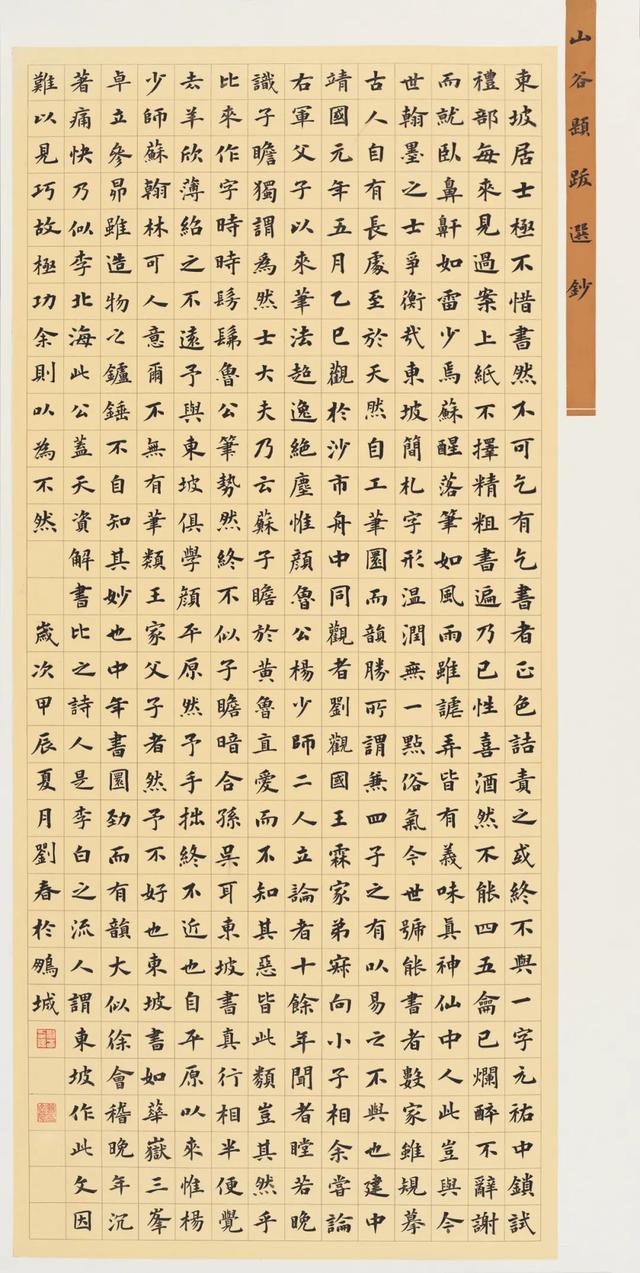 山谷題跋選鈔
東坡居士極不惜書然不可乞有乞書者正色詰責之或終不與一字元祐中鎖試
禮部每來見過案上紙不擇精粗書遍乃已性喜酒然不能四五龠已爛醉不辭謝
而就臥鼻鼾如雷少焉蘇醒落筆如風雨雖謔弄皆有義味真神仙中人此豈與今
世翰墨之士爭衡哉東坡簡札字形溫潤無一點俗氣今世號能書者數家雖規摹
古人自有長處至於天然自工筆圓而韻勝所謂兼四子之有以易之不與也建中
靖國元年五月乙巳觀於沙市舟中同觀者劉觀國王霖家弟寐向小子相余嘗論
右軍父子以來筆法超逸絕塵惟顏魯公楊少師二人立論者十餘年聞者瞠若晚
識子瞻獨謂為然士大夫乃云蘇子瞻於黃魯直愛而不知其惡皆此類豈其然乎
比來作字時時髣髴魯公筆勢然終不似子瞻暗合孫吳耳東坡書真行相半便覺
去羊欣薄紹之不遠予與東坡俱學顏平原然予手拙終不近也自平原以來惟楊
少師蘇翰林可人意爾不無有筆類王家父子者然予不好也東坡書如華嶽三峯
卓立參昴雖造物之鑪錘不自知其妙也中年書圓勁而有韻大似徐會稽晚年沉
著痛快乃似李北海此公蓋天資解書比之詩人是李白之流人謂東坡作此文因
難以見巧故極功余則以為不然 歲次甲辰夏月劉春於鵬城